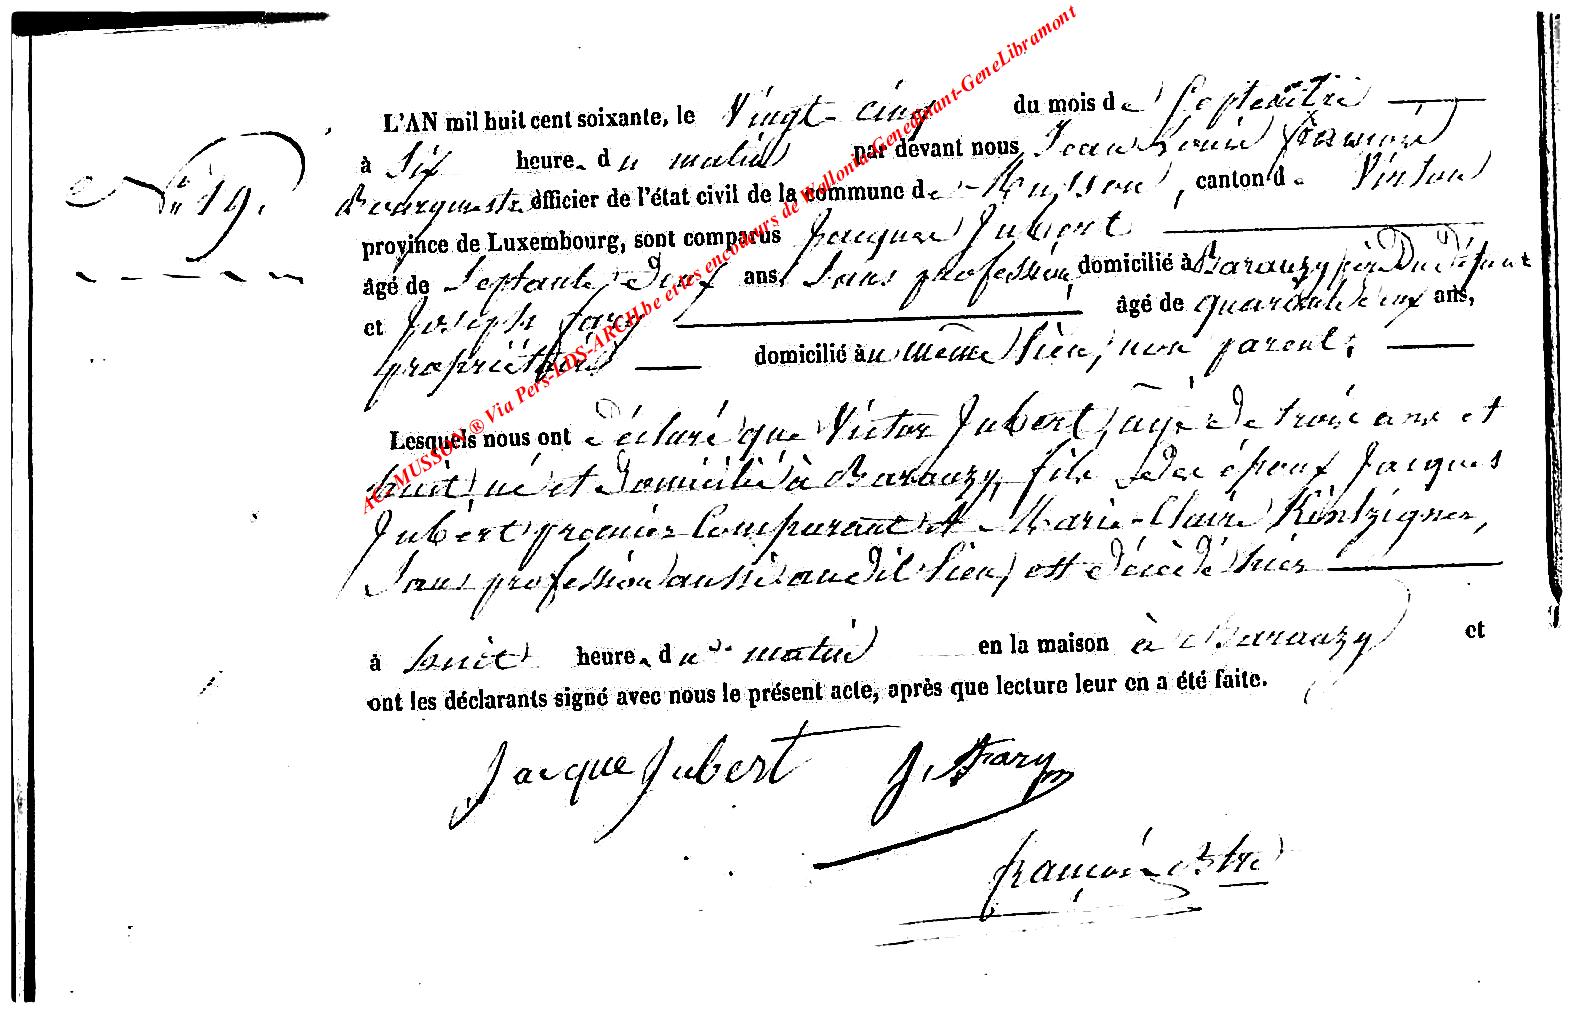 AC-MUSSON ® Via Pers-LDS-ARCH.be et les encodeurs de Wallonia-Genedinant-GeneLibramont
L'AN mil huit cent soixante, le Vingt-cinq du mois de Septembre
N° 19.
à Six heure. du matin par devant nous Jean Louis François
Bourgmestre officier de l'état civil de la commune de Musson, canton de Virton
province de Luxembourg, sont comparus Jacques Jubert
âgé de Septante ans, Sans profession, domicilié à Baranzy, père Du Défunt
et Joseph Fary âgé de quarante ans,
propriétaire domicilié au même lieu, non parent,
Lesquels nous ont déclaré que Victor Jubert, agé de trois ans et
huit, né et Domicilié à Baranzy, fils des époux Jacques
Jubert premier Comparant et Marie-Claire Kintziger,
Sans profession aussi audit lieu, est décédé hier
à huit heure. du matin en la maison à Baranzy et
ont les déclarants signé avec nous le présent acte, après que lecture leur en a été faite.
Jacque Jubert J. Fary
françois Btre